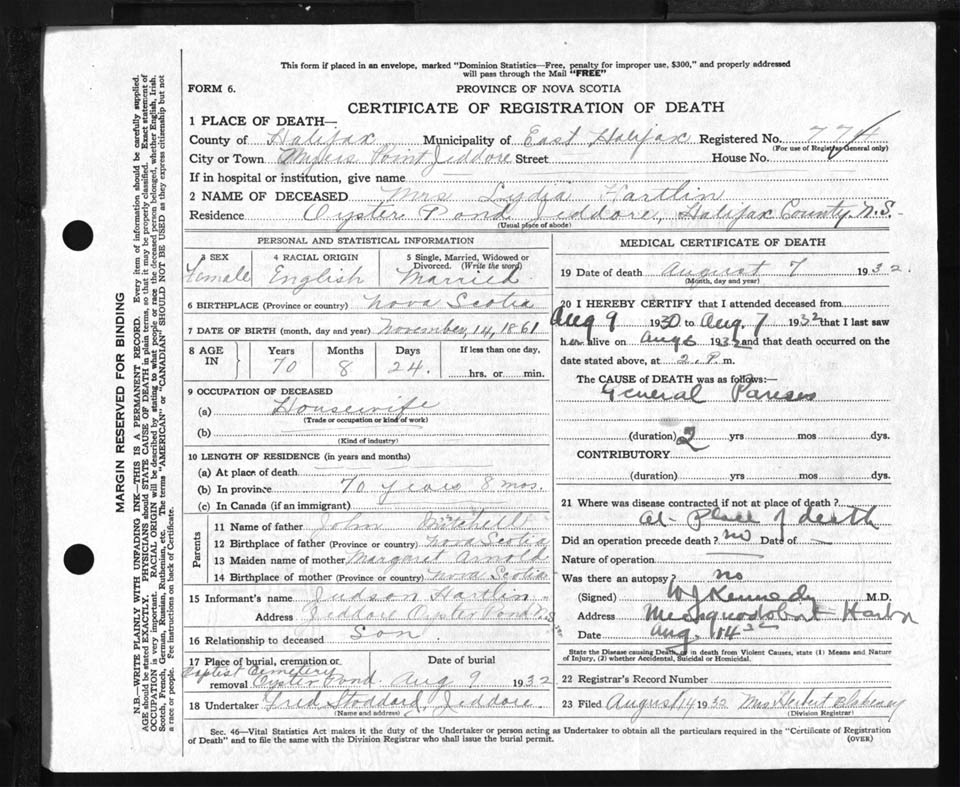 This form if placed in an envelope, marked "Dominion Statistics—Free, penalty for improper use, $300," and properly addressed
will pass through the Mail "FREE"
FORM 6.
PROVINCE OF NOVA SCOTIA
CERTIFICATE OF REGISTRATION OF DEATH
1 PLACE OF DEATH—
County of Halifax Municipality of East Halifax Registered No. 774
(For use of Registrar General only)
City or Town Myers Point Jeddore Street House No.
If in hospital or institution, give name
2 NAME OF DECEASED Mrs Lydia Hartlin
Residence Oyster Pond Jeddore, Halifax County, N.S.
(Usual place of abode)
PERSONAL AND STATISTICAL INFORMATION
3 SEX 4 RACIAL ORIGIN 5 Single, Married, Widowed or Divorced. (Write the word)
Female English Married
6 BIRTHPLACE (Province or country) Nova Scotia
7 DATE OF BIRTH (month, day and year) November, 14, 1861
8 AGE IN Years Months Days If less than one day,
70 8 24. hrs. or min.
9 OCCUPATION OF DECEASED
(a) Housewife
(Trade or occupation or kind of work)
(b)
(Kind of industry)
10 LENGTH OF RESIDENCE (in years and months)
(a) At place of death
(b) In province 70 years 8 mos.
(c) In Canada (if an immigrant)
Parents
11 Name of father John Mitchell
12 Birthplace of father (Province or country) Nova Scotia
13 Maiden name of mother Margaret Arnold
14 Birthplace of mother (Province or country) Nova Scotia
15 Informant's name Judson Hartlin
Address Jeddore Oyster Pond N.S.
16 Relationship to deceased Son
17 Place of burial, cremation or removal Baptist Cemetery Oyster Pond Date of burial Aug 9 1932
18 Undertaker Fred Stoddard, Jeddore
(Name and address)
MEDICAL CERTIFICATE OF DEATH
19 Date of death August 7 1932.
(Month, day and year)
20 I HEREBY CERTIFY that I attended deceased from
Aug 9 1930 to Aug. 7 1932 that I last saw
her alive on Aug 6 1932 and that death occurred on the
date stated above, at 2. P. m.
The CAUSE of DEATH was as follows:—
General Pareses
(duration) 2 yrs mos dys.
CONTRIBUTORY
(duration) yrs mos dys.
21 Where was disease contracted if not at place of death?
at Place of death
Did an operation precede death? no Date of
Nature of operation
Was there an autopsy? no
(Signed) WJ Kennedy M.D.
Address Musquodoboit Harbor
Date Aug. 14 32
State the Disease causing Death, or in death from Violent Causes, state (1) Means and Nature
of Injury, (2) whether Accidental, Suicidal or Homicidal.
22 Registrar's Record Number
23 Filed August 14 1932 Mrs Herbert Blakeney
(Division Registrar)
Sec. 46—Vital Statistics Act makes it the duty of the Undertaker or person acting as Undertaker to obtain all the particulars required in the "Certificate of Registration
of Death" and to file the same with the Division Registrar who shall issue the burial permit.
(OVER)
MARGIN RESERVED FOR BINDING
N.B.—WRITE PLAINLY WITH UNFADING INK—THIS IS A PERMANENT RECORD. Every item of information should be carefully supplied.
AGE should be stated EXACTLY. PHYSICIANS should STATE CAUSE OF DEATH in plain terms, so that it may be properly classified. Exact statement of
OCCUPATION is very important. RACIAL ORIGIN will be described by stating to what people or race the deceased person belonged, whether English, Irish,
Scotch, French, German, Russian, Ruthenian, etc. The terms "AMERICAN" or "CANADIAN" SHOULD NOT BE USED as they express citizenship but not
a race or people. Fee instructions on back of Certificate.